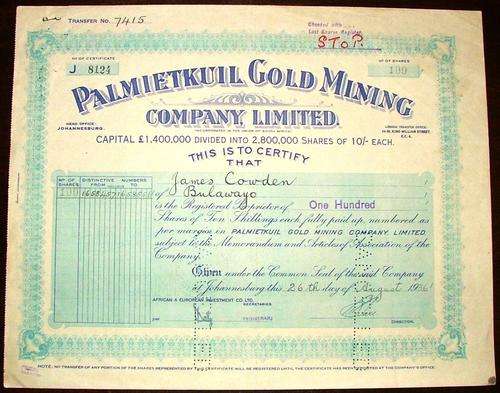 TRANSFER No. 7415
Last Share Register
STOP.
No OF CERTIFICATE
J 8124
No OF SHARES
100
PALMIETKUIL GOLD MINING
COMPANY, LIMITED.
HEAD OFFICE
JOHANNESBURG.
INCORPORATED IN THE UNION OF SOUTH AFRICA
LONDON TRANSFER OFFICE
KING WILLIAM STREET,
E.C.4.
CAPITAL £1,400,000 DIVIDED INTO 2,800,000 SHARES OF 10/- EACH.
THIS IS TO CERTIFY
THAT
No OF SHARES
DISTINCTIVE NUMBERS
FROM TO
100
James Cowden
of Bulawayo
is the Registered Proprietor of One Hundred
Shares of Ten Shillings each, fully paid up, numbered as
per margin, in PALMIETKUIL GOLD MINING COMPANY, LIMITED,
subject to the Memorandum and Articles of Association of the
Company.
Given under the Common Seal of the said Company
at Johannesburg this 26th day of August 1936
AFRICAN & EUROPEAN INVESTMENT CO. LTD.
SECRETARIES
per
REGISTRAR
DIRECTOR.
NOTE: NO TRANSFER OF ANY PORTION OF THE SHARES REPRESENTED BY THIS CERTIFICATE WILL BE REGISTERED UNTIL THE CERTIFICATE HAS BEEN DEPOSITED AT THE COMPANY'S OFFICE.